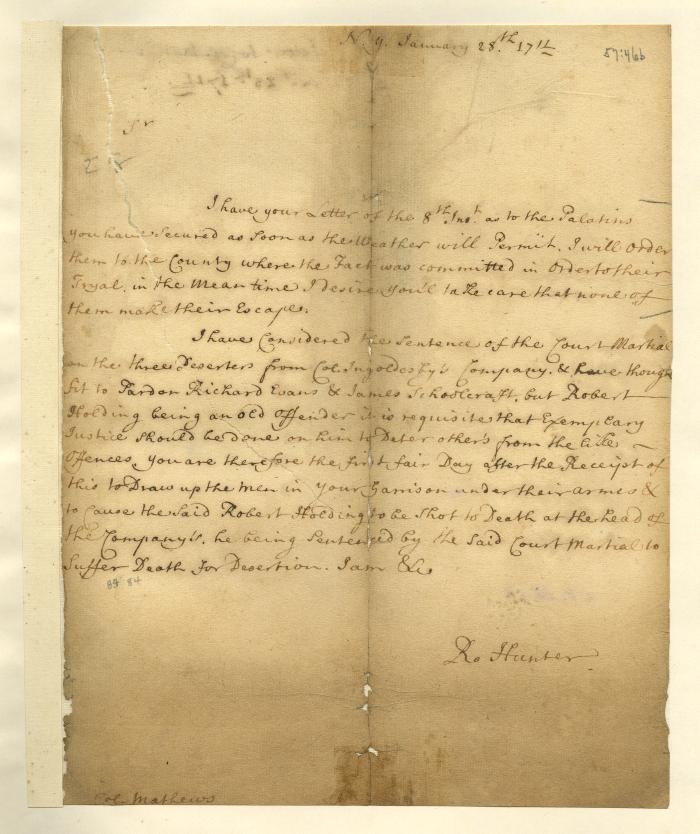 N. y. January 28.th 17 11/
57:466
Sr
I have your Letter of the 8th Inst. as to the Palatins
you have Secured as Soon as the Weather will Permit. I will order
them to the County where the Fact was committed in Order to their
Tryal, in the Mean time I desire you'l take care that none of
them make their Escape.
I have Considered the Sentence of the Court Martial
on the three Deserters from Col. Ingoldesby's Company. & have thought
fit to Pardon Richard Evans & James Schoolcraft, but Robert
Holding being an old offender it is requisite that Exemplary
Justice Should be done on him to Deter others from the like
Offences, you are therefore the first fair Day after the Receipt of
this to Draw up the Men in your Garrison under their armes &
to Cause the Said Robert Holding to be Shot to Death at the head of
the Company's. he being Sentenced by the Said Court Martial to
Suffer Death for Desertion. I am &c
84
Ro Hunter
Col. Mathews